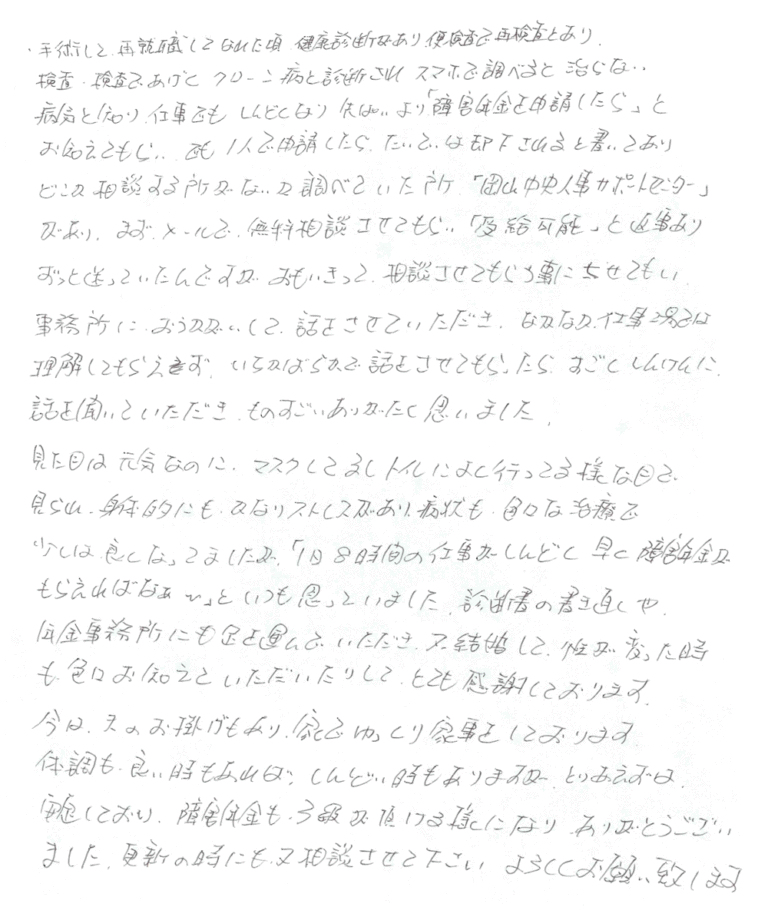 ・手術して、再就職してなれた頃、健康診断があり、便検査で再検査とあり、
検査・検査であげく クローン病と診断され スマホで調べると 治らない
病気と知り、仕事でも しんどくなり 先ぱいより「障害年金を申請したら」と
お知えてもらい、でも 1人で申請したら、たいていは却下されると書いてあり
どこか相談する所がないか調べていた所、「岡山中央人事サポートセンター」
があり、まず、メールで、無料相談させてもらい「受給可能」と返事あり
ずっと迷っていたんですが、おもいきって、相談させてもらう事に させてもらい
事務所に、おうかがいして、話をさせていただき、なかなか、仕事場では
理解してもらえきず、いちかばちかで 話をさせてもらったら、すごく しんけんに、
話を聞いていただき、ものすごい ありがたく 思いました。
見た目は 元気なのに、マスクしてるし トイレによく行ってる様な目で
見られ、身体的にも、かなりストレスがあり、病状も、色々な治療で
少しは 良くなってましたが、「1日8時間の仕事がしんどく 早く 障害年金が
もらえればなぁ〜」と いつも思っていました。診断書の書き直しや、
年金事務所にも足を運んでいただき、又、結婚して、性が変った時
も、色々お知えていただいたりして、とても 感謝しております。
今は、夫のお掛げもあり、家でゆっくり家事をしております
体調も、良い時もあれば、しんどい時もありますが、とりあえずは、
安定しており、障害年金も、3級が頂ける様になり、ありがとうござい
ました。更新の時にも、又 相談させて下さい よろしくお願い致します